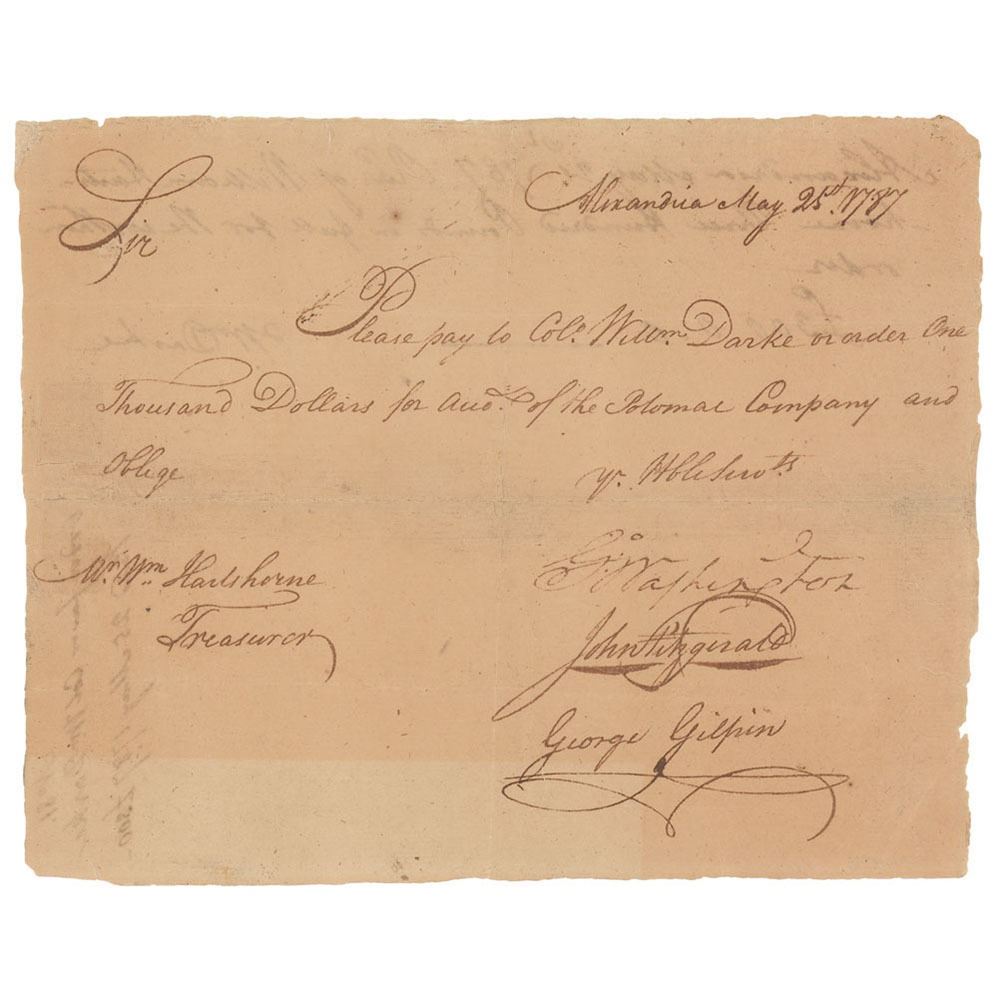 Alexandria May 25th. 1787
Sir
Please pay to Colo. Willm. Darke or order One
Thousand Dollars for Acct. of the Potomac Company and
Oblige
yr. Hble Servts
Mr. Wm Hartshorne
Treasurer
Go: Washington
John Fitzgerald
George Gilpin